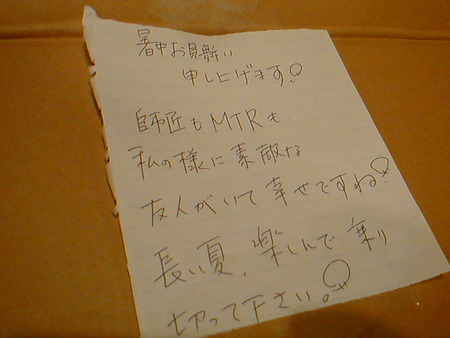 暑中お見舞い
申し上げます
師匠もMTRも
私の様に素敵な
友人がいて幸せですね
長い夏、楽しんで乗り
切って下さい。